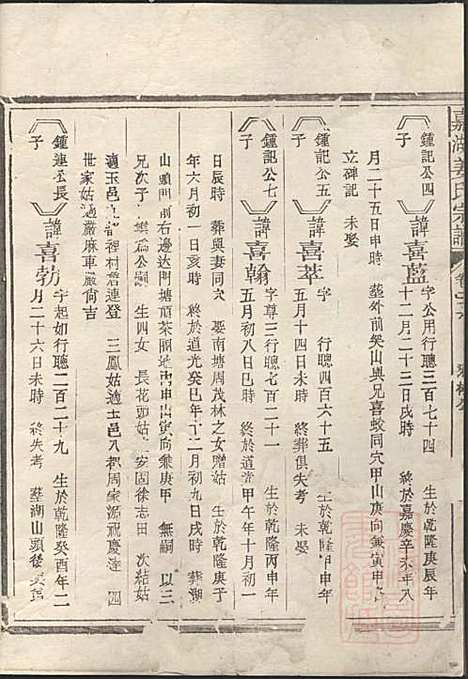 嘉湖姜氏宗譜
鍾記公四子
諱喜藍
字公用行聰三百七十四 生於乾隆庚辰年
十二月二十三日戌時 終於嘉慶辛未年八
月二十五日申時 塟外前癸山與兄喜蛟同穴甲山庚向兼寅申
立碑記 未娶
鍾記公五子
諱喜萃
字 行聰四百六十五 生於乾隆甲申年
五月十四日未時 終葬俱失考 未娶
鍾記公七子
諱喜翰
字尊三行聰七百二十一 生於乾隆丙申年
五月初八日巳時 終於道光甲午年十月初一
日辰時 葬與妻同穴 娶南塘周茂林之女贈姑 生於乾隆庚子
年六月初一日亥時 終於道光癸巳年十二月初九日戌時 葬湖
山頭門前右邊达門塘 茶園地 申山寅向兼庚甲 無嗣 以三
兄次子 雲 為公嗣 生四女 長花頭姑 安固徐志田 次結姑
適玉邑 裡村詹連登 三鳳姑適土邑八都周家源祝慶達 四
世家姑適嚴麻車嚴尚吉
鍾連公長子
諱喜勃
字起如行聰二百二十九 生於乾隆癸酉年二
月二十六日未時 終失考 塟湖山頭後